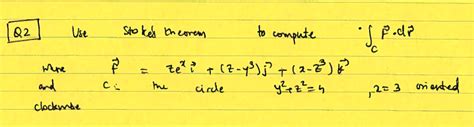 Q2 Use Stoke's theorem to compute ∫_C F⃗·dr⃗
where F⃗ = ze^x i⃗ + (z-y³)j⃗ + (x-z³)k⃗
and C is the circle y²+z²=4, x=3 oriented
clockwise